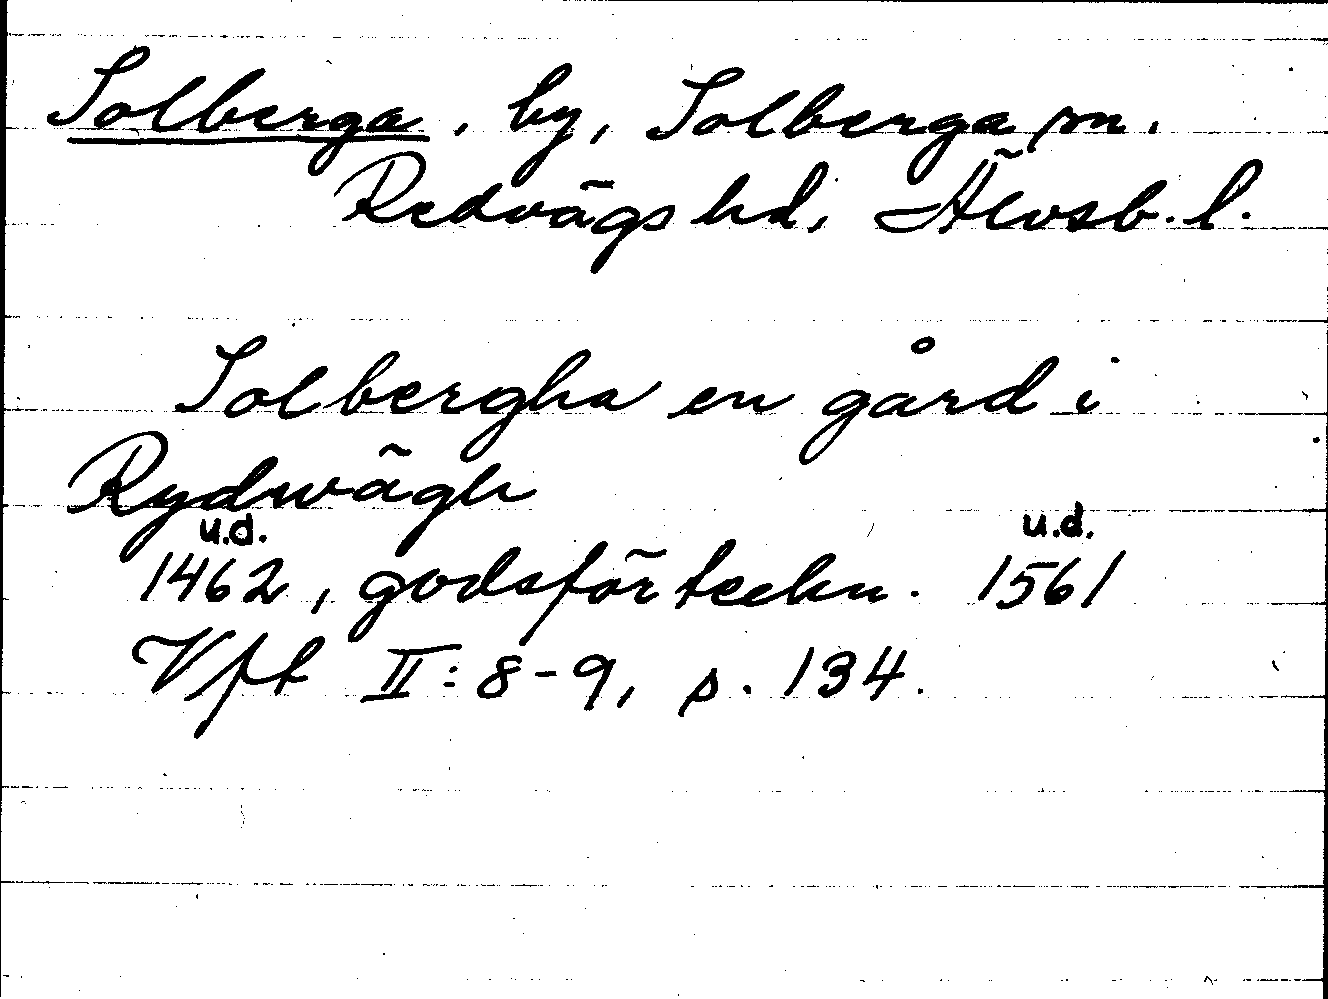 Solberga, by, Solberga sn.
Redvägs hd, Älvsb. l.
Solbergha en gård i
Rydwägh
u.d. u.d.
1462, godsförteckn. 1561
Vft II: 8-9, s. 134.